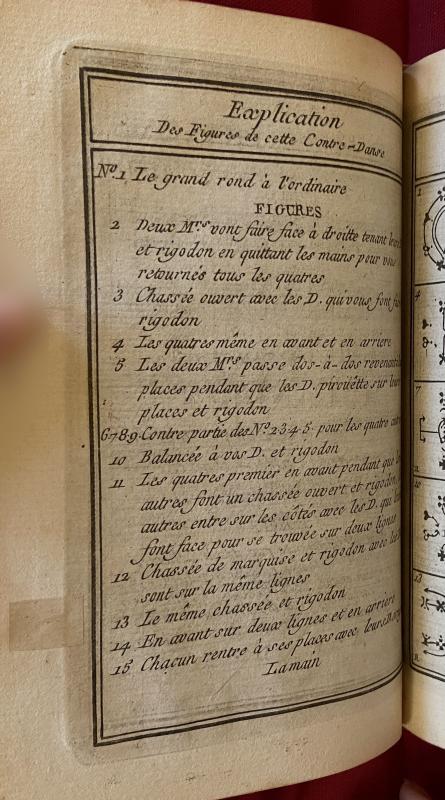 Explication
Des Figures de cette Contre-Danse
No. 1 Le grand rond à l'ordinaire
FIGURES
2 Deux Mrs vont faire face à droitte tenant
et rigodon en quittant les mains pour vous
retournés tous les quatres
3 Chassée ouvert avec les D. qui vous font
rigodon
4 Les quatres même en avant et en arriere
5 Les deux Mrs passe dos-à-dos revenant
places pendant que les D. pirouëtte sur leurs
places et rigodon
6789 Contre partie des No. 2.3.4.5. pour les quatre
10 Balancée à vos D. et rigodon
11 Les quatres premier en avant pendant que
autres font un chassée ouvert et rigodon
autres entre sur les côtés avec les D. qui
font face pour se trouvée sur deux lignes
12 Chassée de marquise et rigodon avec
sont sur la même lignes
13 Le même chassée et rigodon
14 En avant sur deux lignes et en arriere
15 Chacun rentre à ses places avec leurs D.
La main
1
4
7
10
13